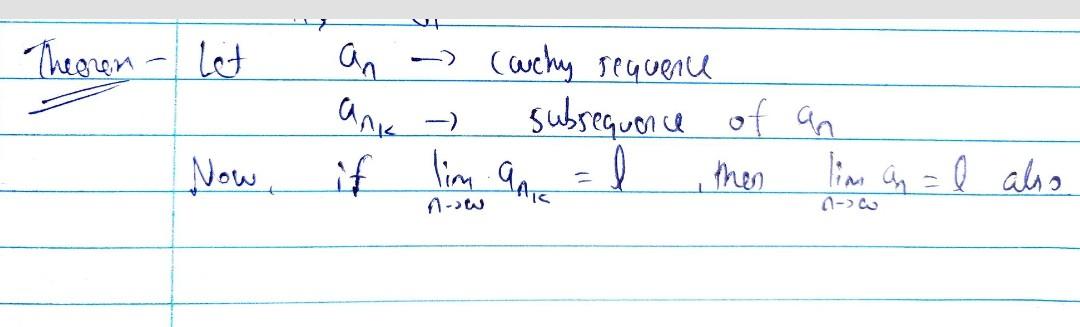 Theorem - Let an → Cauchy sequence
ank → subsequence of an
Now, if lim ank = l , then lim an = l also
n→∞ n→∞